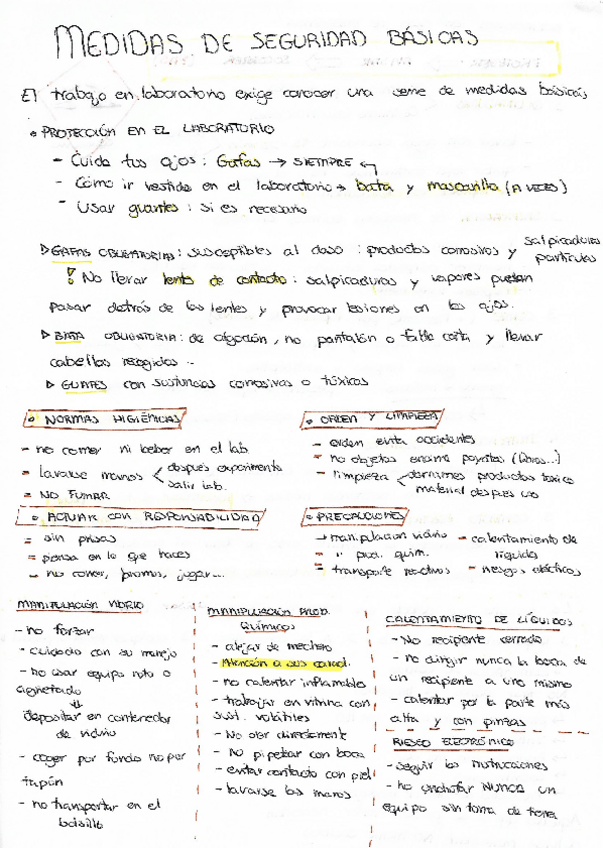 MEDIDAS DE SEGURIDAD BÁSICAS
El trabajo en laboratorio exige conocer una serie de medidas básicas
• PROTECCIÓN EN EL LABORATORIO
- Cuida tus ojos : Gafas → SIEMPRE
- Cómo ir vestido en el laboratorio → bata y mascarilla (A VECES)
- Usar guantes : si es necesario
▷ GAFAS OBLIGATORIAS : susceptibles al daso : productos corrosivos y salpicaduras partículas
! No llevar lentes de contacto : salpicaduras y vapores puedan
pasar detrás de las lentes y provocar lesiones en los ojos.
▷ BATA OBLIGATORIA : de algodón, no pantalón o falda corta y llevar
cabellos recogidos -
▷ GUANTES con sustancias corrosivas o tóxicas
• NORMAS HIGIÉNICAS
- no comer ni beber en el lab.
- lavarse manos < después experimento
salir lab.
- NO FUMAR
• ORDEN Y LIMPIEZA
- orden evita accidentes
- no objetos encima poyatas (libros...)
- limpieza < derrames productos tóxico
material despues uso
• ACTUAR CON RESPONSABILIDAD
- sin prisas
- piensa en lo que haces
- no correr, bromas, jugar...
• PRECAUCIONES
→ manipulación vidrio
- " prod. quim.
- transporte reactivos
- calentamiento de
líquido
- riesgos eléctricos
MANIPULACIÓN VIDRIO
- no forzar
- cuidado con su manejo
- no usar equipo roto o
agrietado
⇓
depositar en contenedor
de vidrio
- coger por fondo no por
tapón
- no transportar en el
bolsillo
MANIPULACIÓN PROD.
QUÍMICOS
- alejar de mechero
- Atención a sus caract.
- no calentar inflamables
- trabajar en vitrina con
sust. volátiles
- No oler directamente
- No pipetear con boca
- evitar contacto con piel
- lavarse las manos
CALENTAMIENTO DE LÍQUIDOS
- No recipiente cerrado
- no dirigir nunca la boca de
un recipiente a uno mismo
- calentar por la parte más
alta y con pinzas
RIESGO ELECTRÓNICO
- seguir las instrucciones
- no enchufar NUNCA un
equipo sin toma de tierra